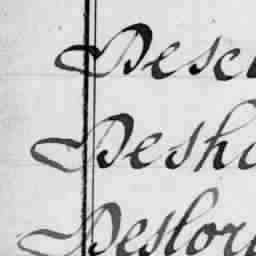 Desc
Desha
Deslor